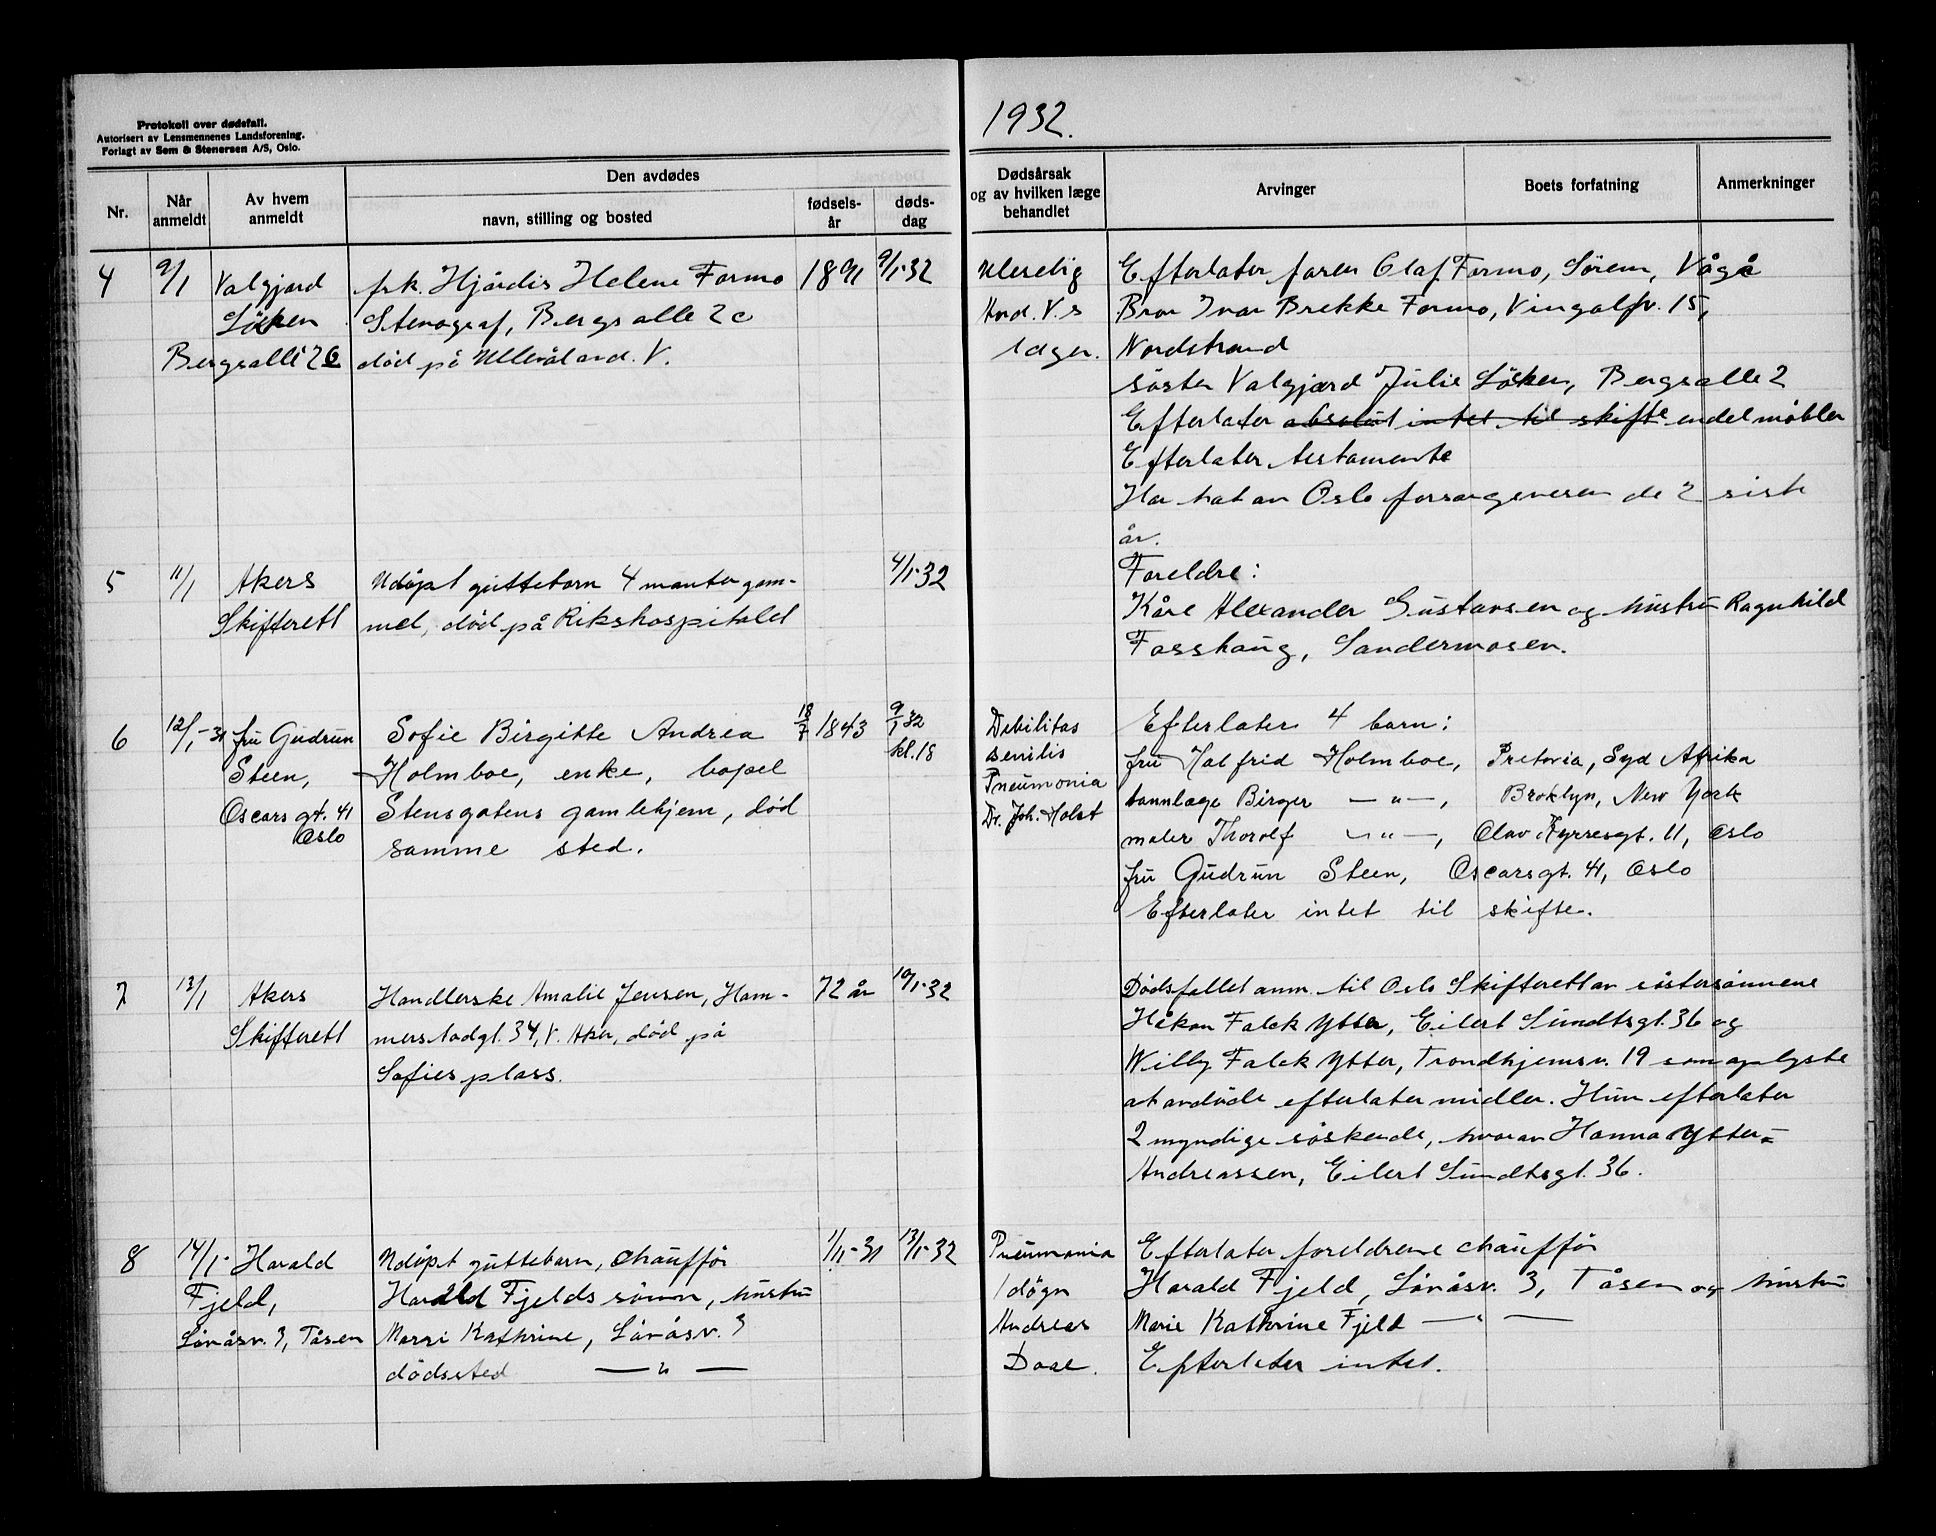 Protokoll over dødsfall.
Autorisert av Lensmennenes Landsforening.
Forlagt av Sem & Stenersen A/S, Oslo.
1932.
Nr.
Når anmeldt
Av hvem anmeldt
Den avdødes
navn, stilling og bosted
fødsels-år
døds-dag
Dødsårsak og av hvilken læge behandlet
Arvinger
Boets forfatning
Anmerkninger
4 9/1 Valgjerd frk. Hjørdis Helene Formo 1891 9/1-32
Løken Stenograf, Bergsalle 2c
Bergsalle 2c død på Ullevål avd. V.
Avd. V.s
læger.
Efterlater faren Olaf Formo, Sørem, Vågå
Bror Ivar Brekke Formo, Vingolfv. 15,
Nordstrand
søster Valgjerd Julie Løken, Bergsalle 2
Efterlater absolut intet til skifte endel møbler
Efterlater testamente
Har hatt av Oslo forsorgsvesen de 2 siste
år.
5 11/1 Akers Udøpt guttebarn 4 måneter gam- 4/1-32
Skifterett mel, død på Rikshospitalet
Foreldre:
Kåre Alexander Gustavsen og hustru Ragnhild
Fosshaug, Sandermosen.
6 12/1-31 fru Gudrun Sofie Birgitte Andrea 18/7 1843 9/1-32
kl. 18
Steen, Holmboe, enke, bopel
Oscarsgt. 41 Stensgatens gamlehjem, død
Oslo samme sted.
Debilitas
senilis
Pneumonia
Dr. Joh. Holst
Efterlater 4 barn:
fru Halfrid Holmboe, Pretoria, Syd Afrika
tannlæge Birger —"—, Broklyn, New York
maler Thorolf —"—, Olav Kyrresgt. 11, Oslo
fru Gudrun Steen, Oscarsgt. 41, Oslo
Efterlater intet til skifte.
7 13/1 Akers Handlerske Amalie Jensen, Ham- 72 år 10/1-32
Skifterett merstadgt. 34, V. Aker, død på
Sofies plass.
Dødsfallet anm. til Oslo Skifterett av søstersønnene
Håkon Falck Ytter, Eilert Sundtsgt. 36 og
Willy Falck Ytter, Trondhjemsv. 19 som oplyste
at avdøde efterlater midler. Hun efterlater
2 myndige søskende, hvorav Hanna Ytter-
Andreassen, Eilert Sundtsgt. 36.
8 14/1- Harald Udøpt guttebarn, chauffør 1/11-31 13/1-32
Fjeld, Harald Fjelds sønn, hustru
Lôvåsv. 3, Tåsen Marie Kathrine, Lôvåsv. 3
dødssted —"—
Pneumonia
1 døgn
Andreas
Efterlater foreldrene chauffør
Harald Fjeld, Lôvåsv. 3, Tåsen og hustru
Marie Kathrine Fjeld —"—
Efterlater intet.